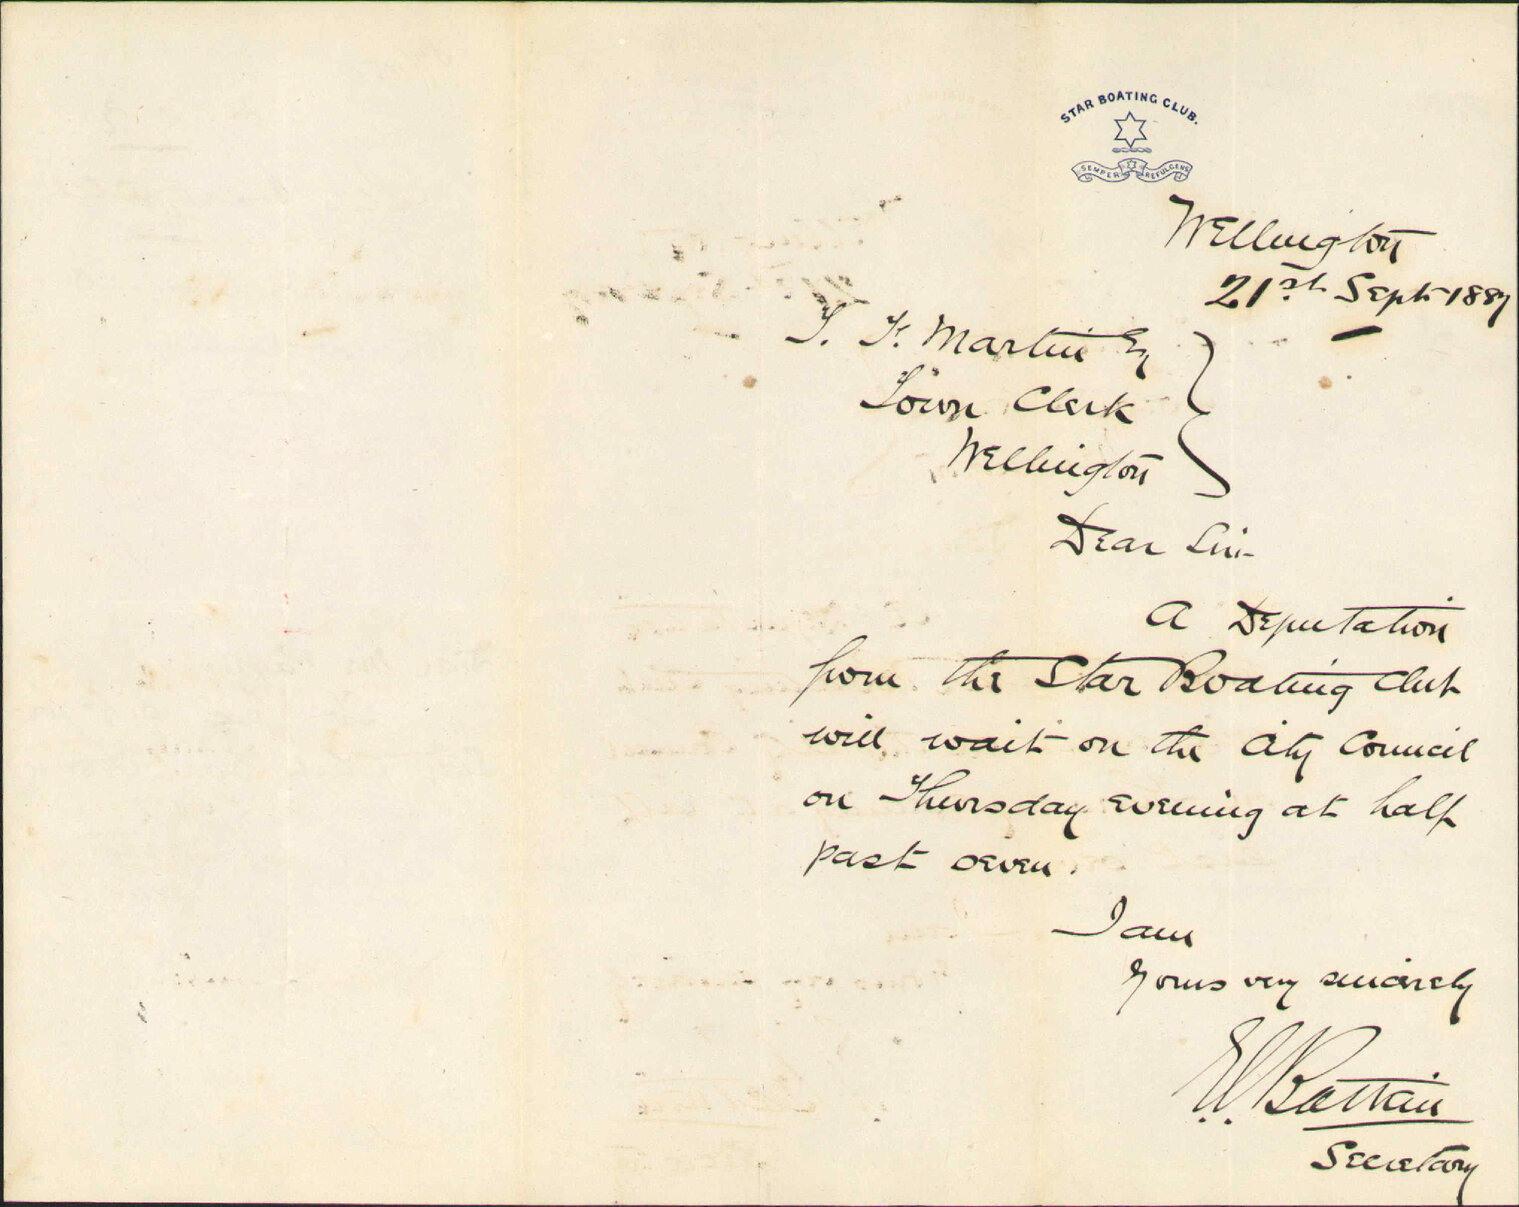 STAR BOATING CLUB.
SEMPER REFULGENS
Wellington
21st Sept 1887
T. F. Martin Esq
Town Clerk
Wellington
Dear Sir
A Deputation
from the Star Boating Club
will wait on the City Council
on Thursday evening at half
past seven.
I am
Yours very sincerely
Secretary